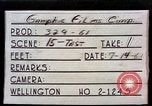 Graphic Films Corp.
PROD: 329-61
SCENE: 15-Test TAKE: 1
FEET: DATE: 7-14-61
REMARKS:
CAMERA:
WELLINGTON HO 2-124